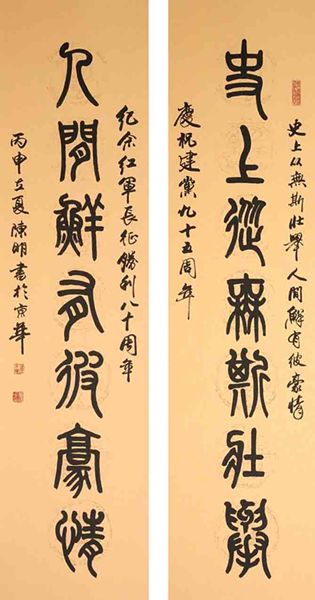 史上從無斯壯舉
史上从無斯壯舉 人间鮮有彼豪情
慶祝建黨九十五周年
人間鮮有彼豪情
纪念红軍長征勝利八十周年
丙申立夏陳明書於京華